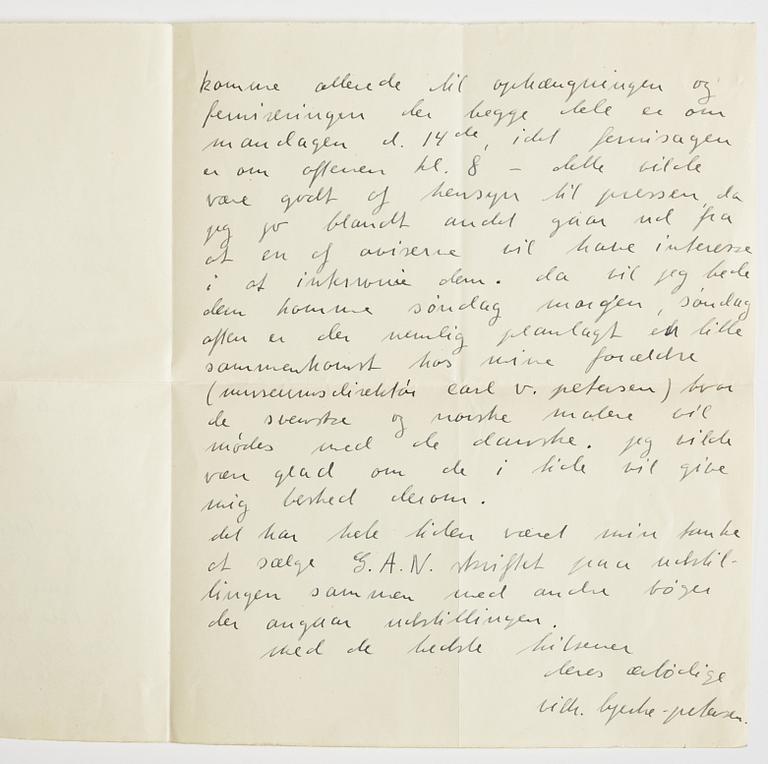 komme allerede til ophængningen og
ferniseringen der begge dele er om
mandagen d. 14de, idet fernisagen
er om aftenen kl. 8 – dette vilde
være godt af hensyn til pressen, da
jeg jo blandt andet gaar ud fra
at en af aviserne vil have interesse
i at interwnie dem. da vil jeg bede
dem komme søndag morgen, søndag
aften er der nemlig planlagt en lille
sammenkomst hos mine forældre
(museumsdirektør carl v. petersen) hvor
de svenske og norske malere vil
mødes med de danske. jeg vilde
være glad om de i tide vil give
mig besked derom.
det har hele tiden været min tanke
at sælge G.A.N. skriftet paa udstil-
lingen sammen med andre bøger
der angaar udstillingen.
med de bedste hilsener
deres ærbødige
vilh. bjerke-petersen.